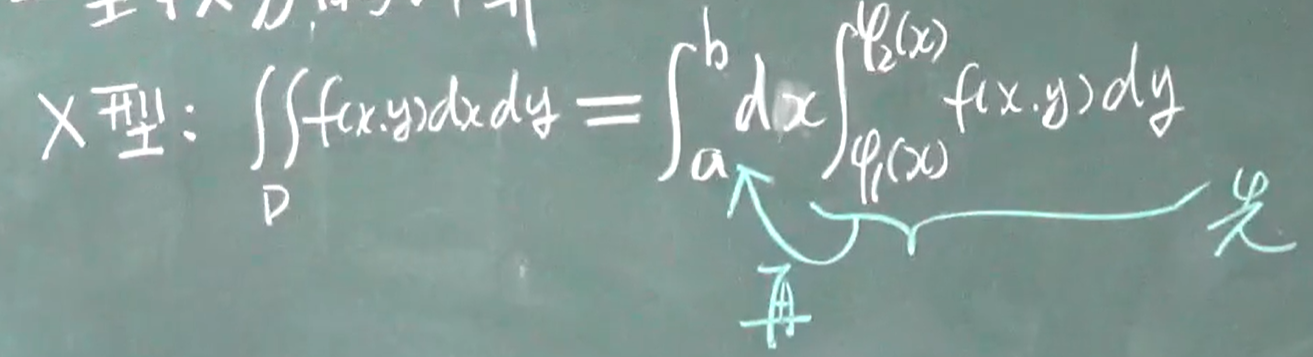 X型: ∬_D f(x.y)dxdy = ∫_a^b dx ∫_{φ₁(x)}^{φ₂(x)} f(x.y)dy
先
再